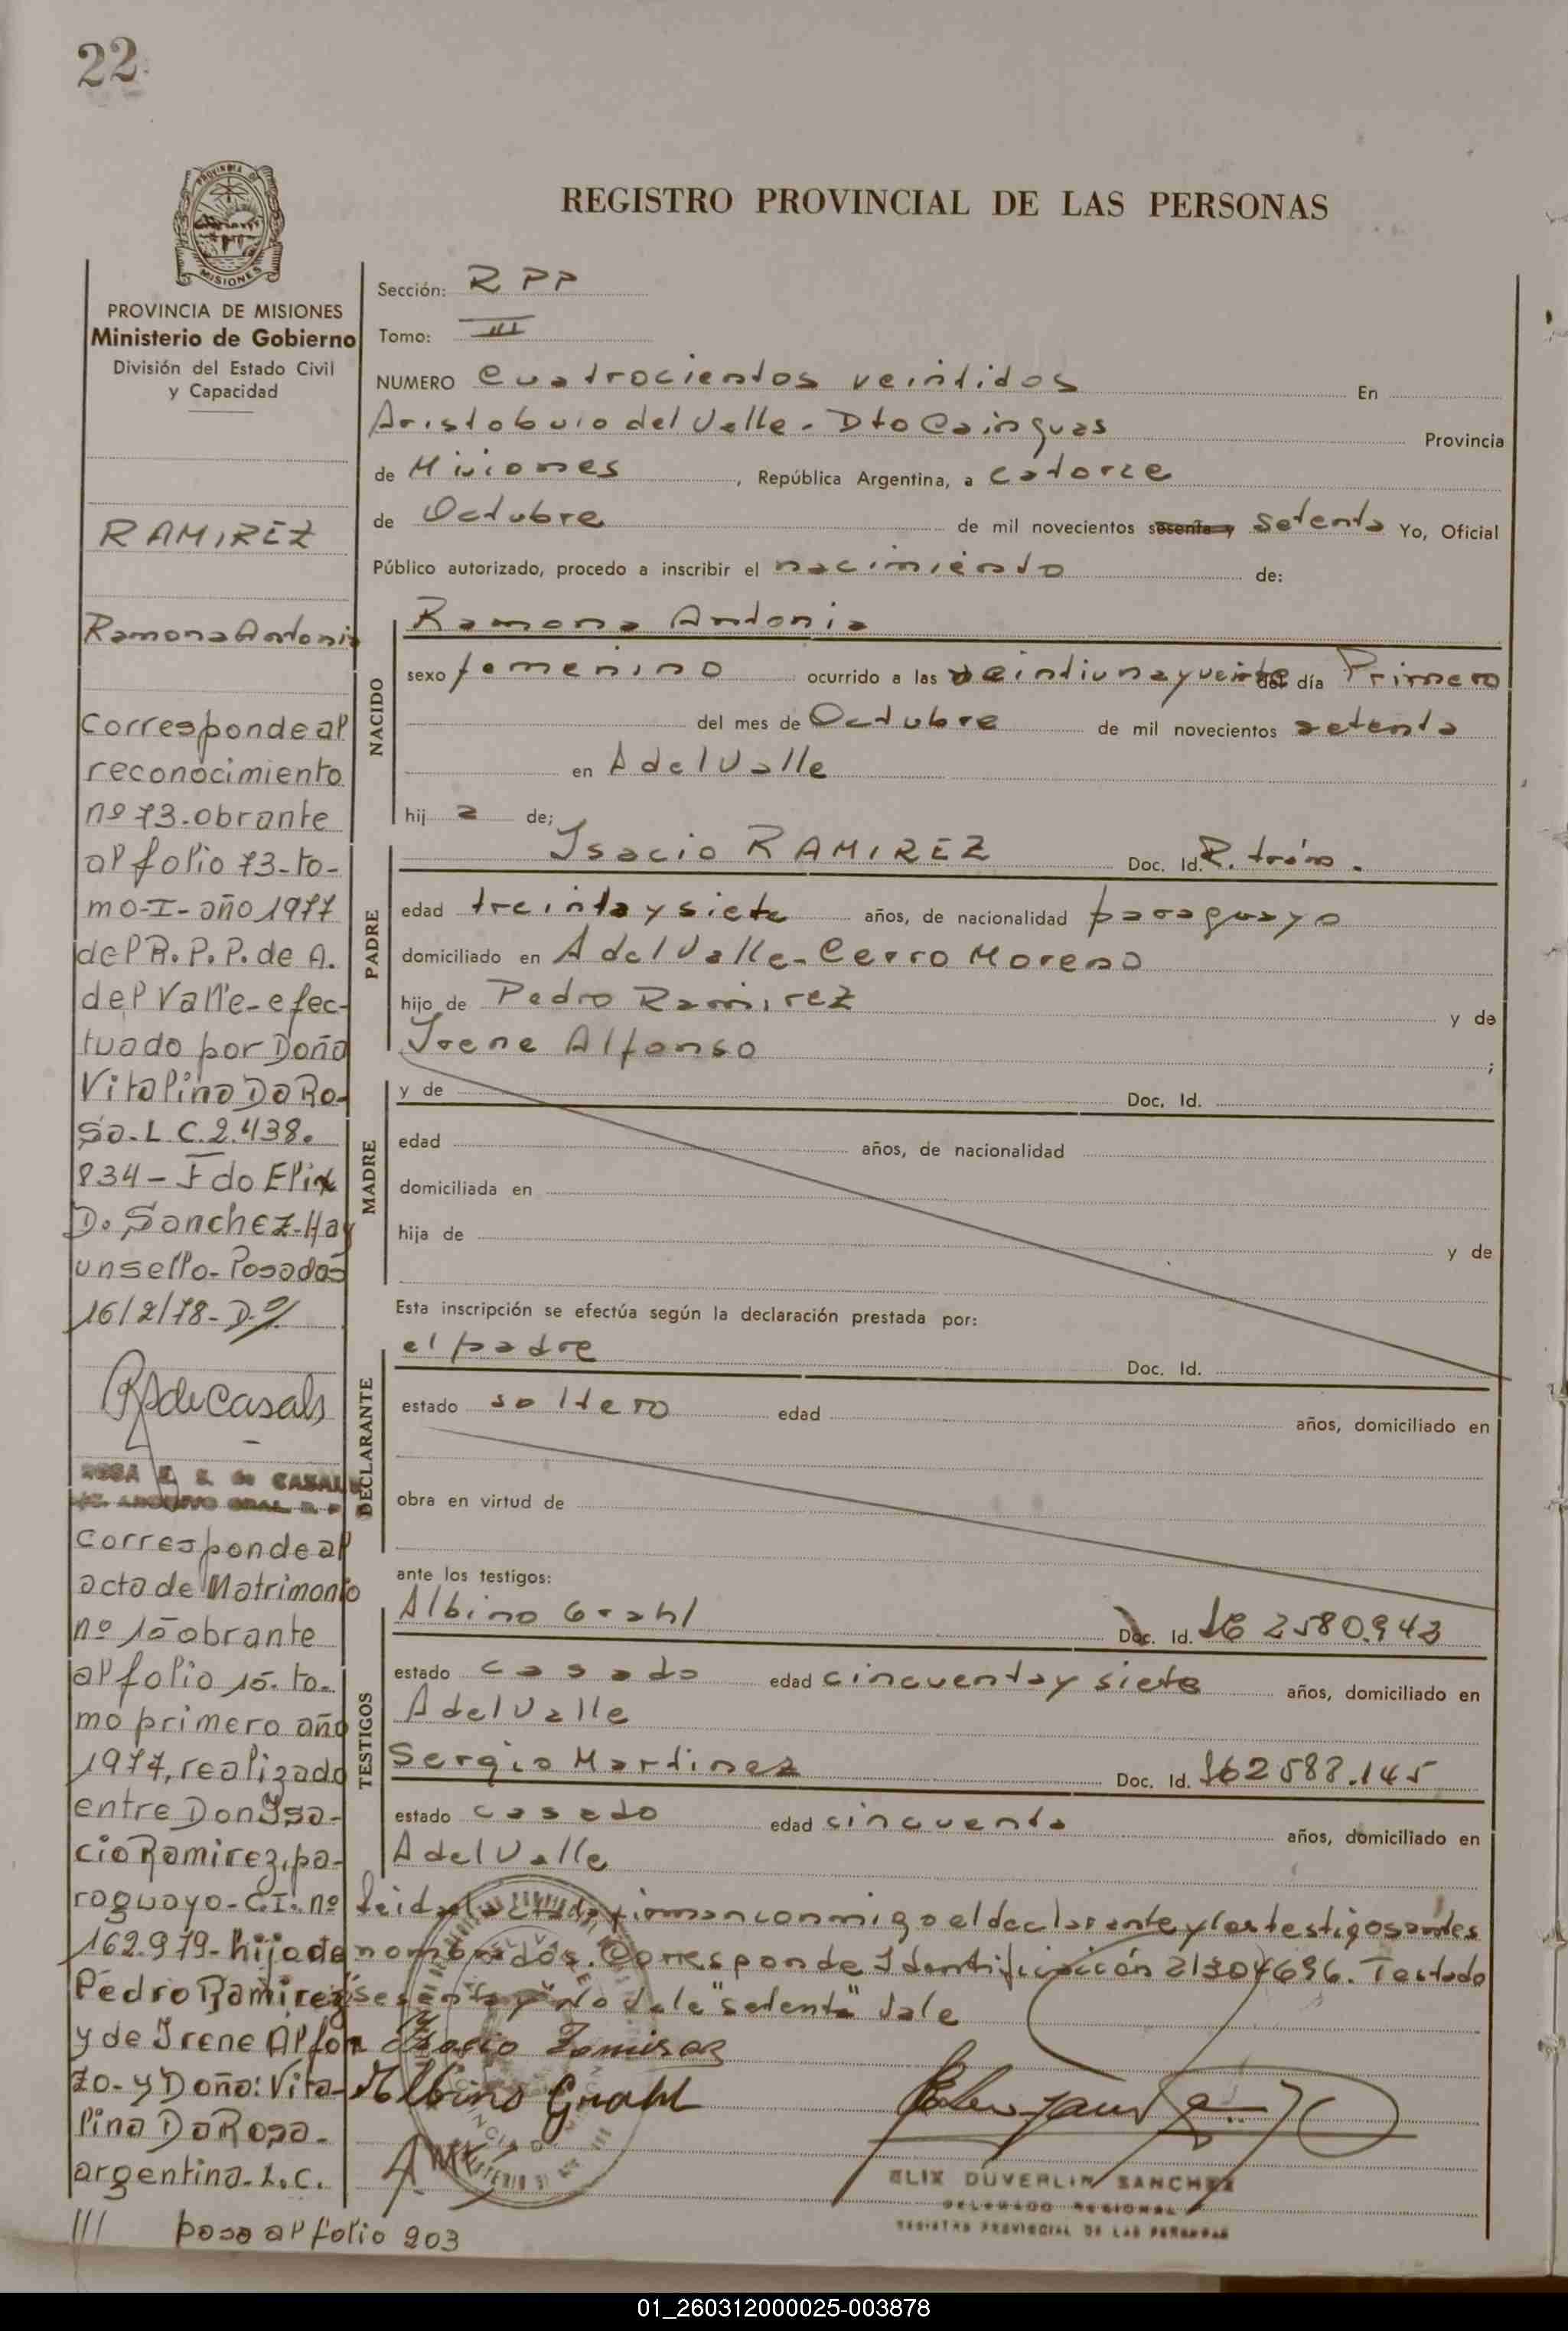 22
PROVINCIA DE
MISIONES
REGISTRO PROVINCIAL DE LAS PERSONAS
PROVINCIA DE MISIONES
Ministerio de Gobierno
División del Estado Civil
y Capacidad
RAMIREZ
Ramona Antonia
Corresponde al
reconocimiento
nº 73. obrante
al folio 73-to-
mo-I-año 1977
del R. P. P. de A.
del Valle-efec-
tuado por Doña
Vitalina Da Ro-
sa. L C. 2.438.
834 - Fdo Elix
D. Sanchez-Hay
un sello-Posadas
16/2/78-
RAdeCasals
ROSA E. S. de CASALS
ARCHIVO GRAL. R. P.
Corresponde al
acta de Matrimonio
nº 15 obrante
al folio 15. to-
mo primero año
1977, realizado
entre Don Isa-
cio Ramirez, pa-
raguayo-C.I. nº
162.979-hijo de
Pedro Ramirez
y de Irene Alfon
zo-y Doña: Vita-
lina Da Rosa-
argentina. L.C.
/// pasa al folio 203
Sección: R P P
Tomo: III
NUMERO Cuatrocientos veintidos En
Aristobulo del Valle. Dto Cainguas Provincia
de Misiones, República Argentina, a catorce
de Octubre de mil novecientos sesenta y setenta Yo, Oficial
Público autorizado, procedo a inscribir el nacimiento de:
NACIDO
Ramona Antonia
sexo femenino ocurrido a las veintiuna y veinte del día Primero
del mes de Octubre de mil novecientos setenta
en A del Valle
hij a de;
PADRE
Isacio RAMIREZ Doc. Id. R. trám.
edad treinta y siete años, de nacionalidad paraguayo
domiciliado en A del Valle-Cerro Moreno
hijo de Pedro Ramirez y de
Irene Alfonso ;
MADRE
y de Doc. Id.
edad años, de nacionalidad
domiciliada en
hija de y de
Esta inscripción se efectúa según la declaración prestada por:
DECLARANTE
el padre Doc. Id.
estado soltero edad años, domiciliado en
obra en virtud de
ante los testigos:
TESTIGOS
Albino Grahl Doc. Id. 2580.943
estado casado edad cincuenta y siete años, domiciliado en
A del Valle
Sergio Martinez Doc. Id.
estado casado edad cincuenta años, domiciliado en
A del Valle
Leida el acta firman conmigo el declarante y los testigos antes
nombrados. Corresponde Identificación 21304696. Testado
"sesenta y" No Vale "setenta" Vale
Isacio Ramirez
Albino Grahl
ELIX DUVERLIN SANCHEZ
DELEGADO REGIONAL
REGISTRO PROVINCIAL DE LAS PERSONAS
01_260312000025-003878